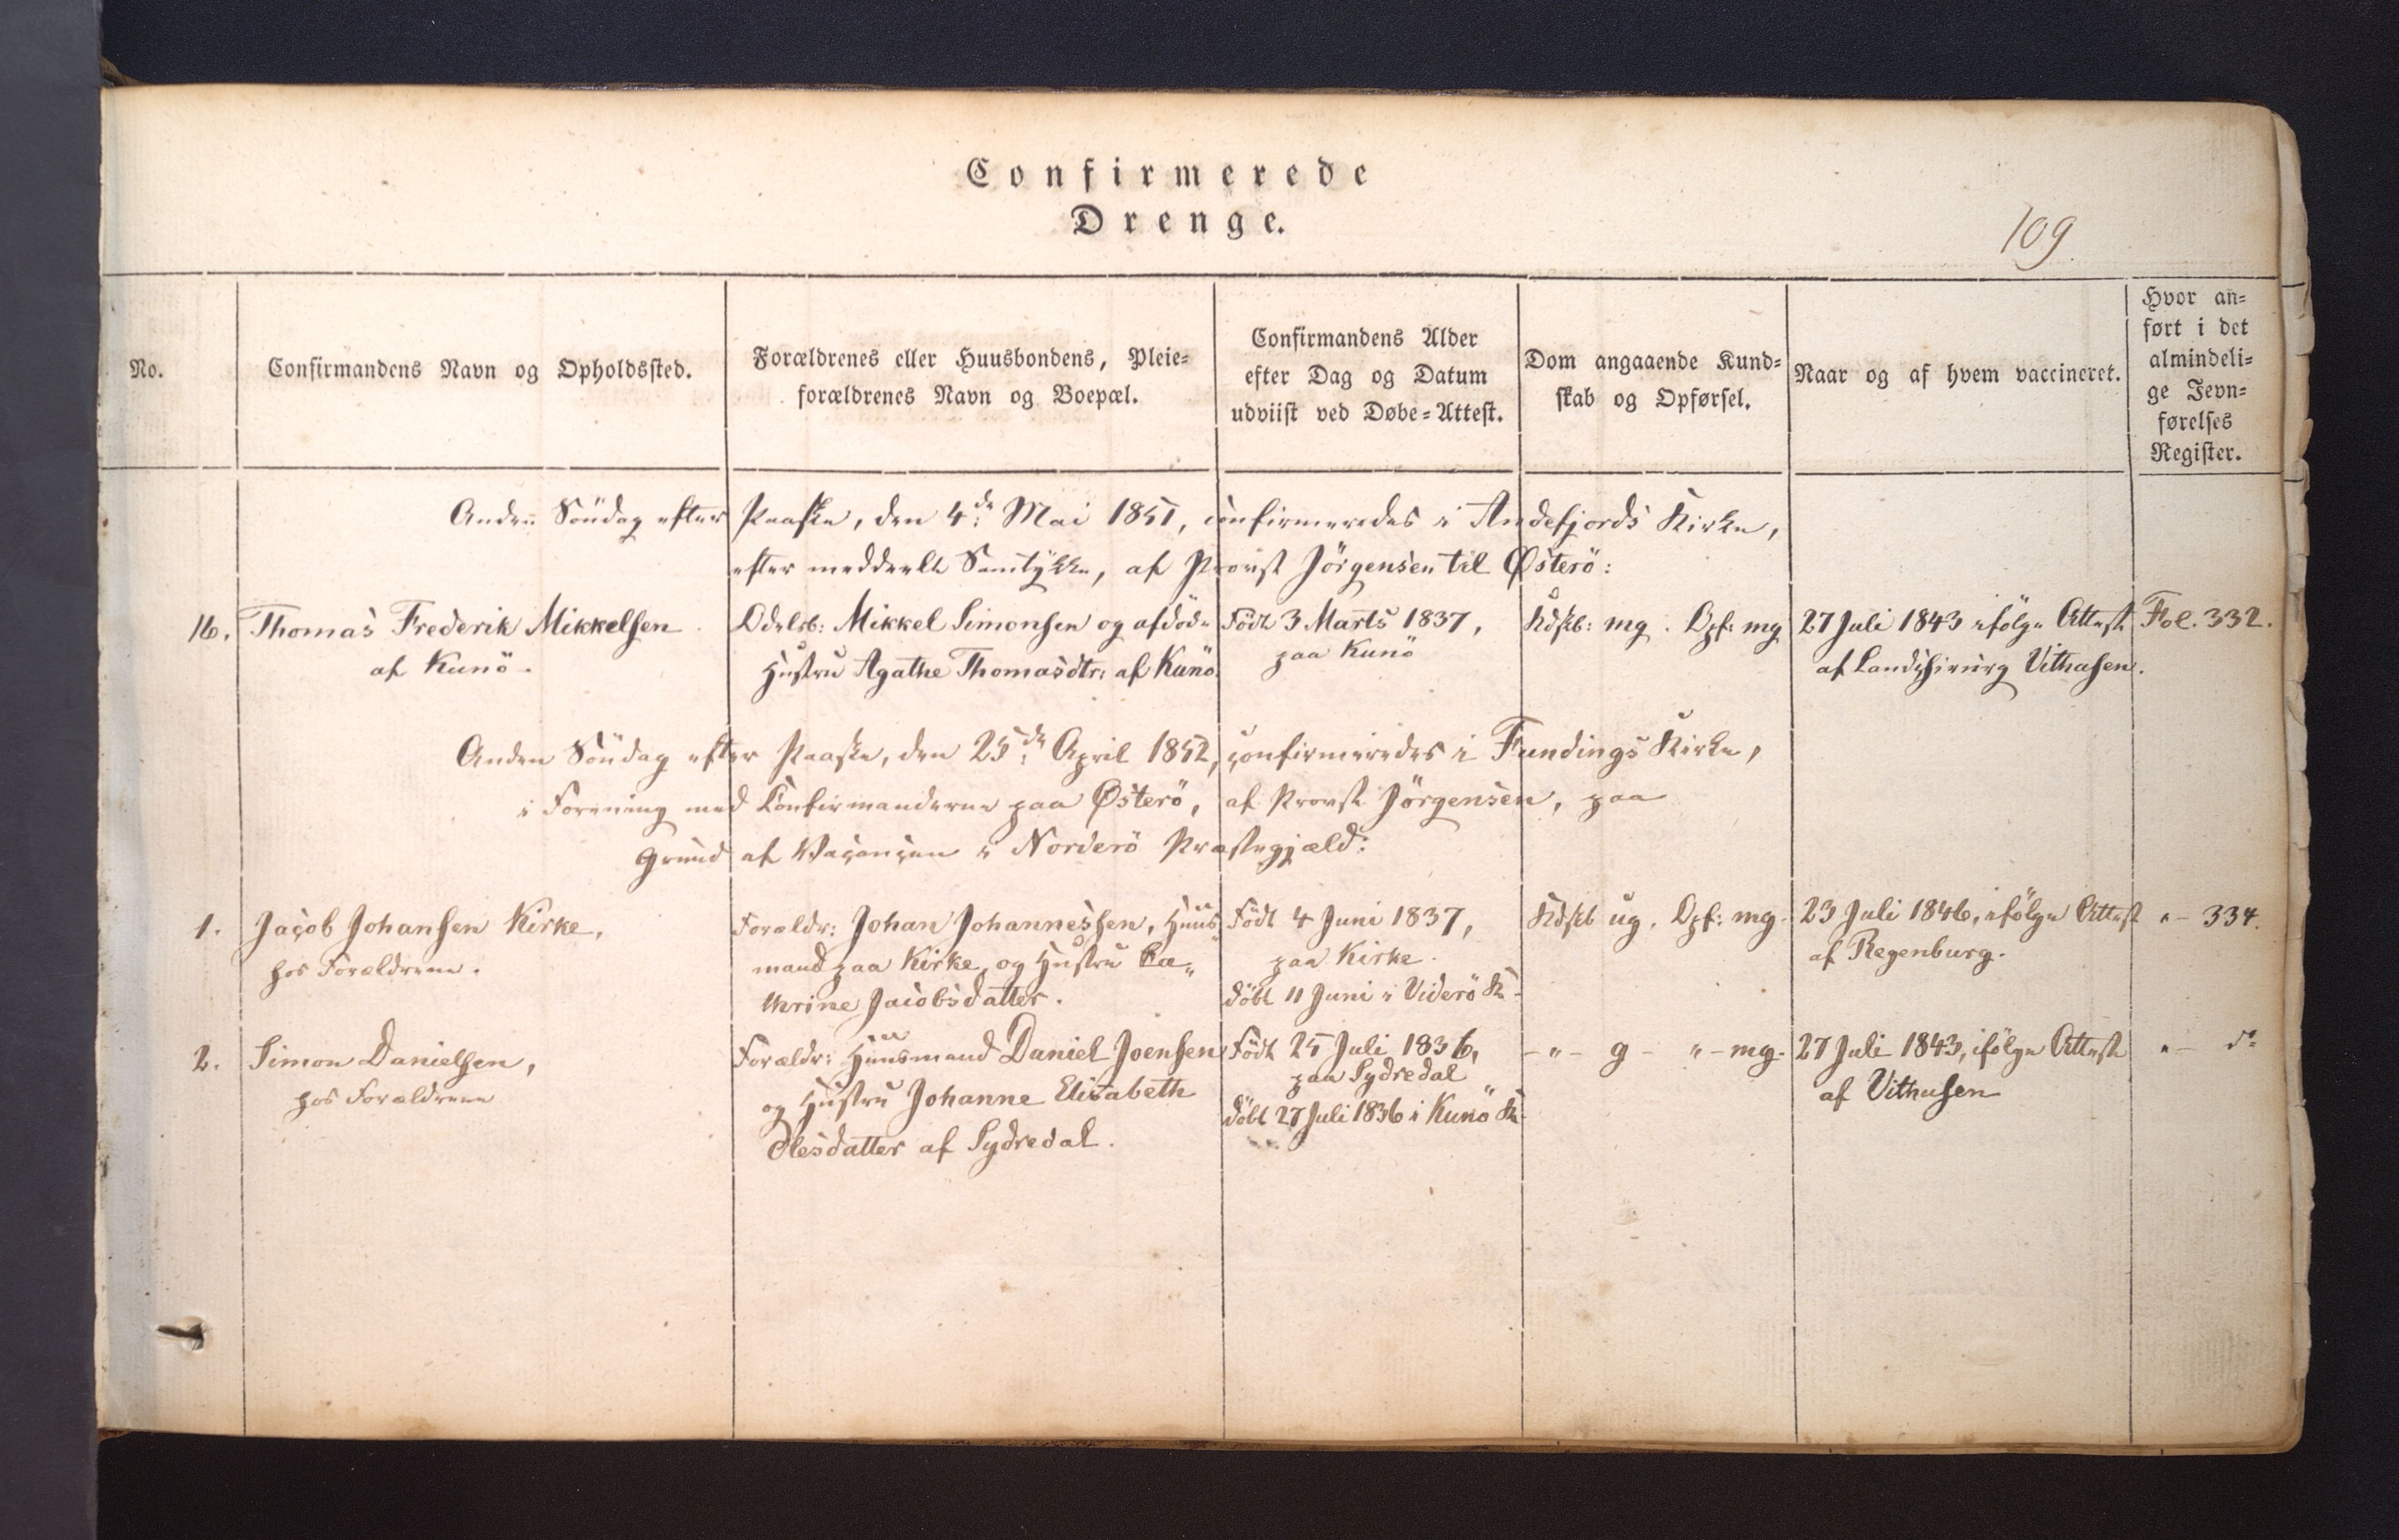 Confirmerede
Drenge.
109
No.
Confirmandens Navn og Opholdssted.
Forældrenes eller Huusbondens, Pleie=
forældrenes Navn og Boepæl.
Confirmandens Alder
efter Dag og Datum
udviist ved Døbe=Attest.
Dom angaaende Kund=
skab og Opførsel.
Naar og af hvem vaccineret.
Hvor an=
ført i det
almindeli=
ge Jevn=
førelses
Register.
Anden Söndag efter Paaske, den 4de Mai 1851, confirmeredes i Andefjords Kirke,
efter meddeelt Samtykke, af Provst Jörgensen til Østerö:
16. Thomas Frederik Mikkelsen
af Kunö.
Odelsb: Mikkel Simonsen og afdöde
Hustru Agathe Thomasdtr: af Kunö.
Födt 3 Marts 1837,
paa Kunö
Kdskb: mg. Opf: mg
27 Juli 1843 ifölge Attest
af Landchirurg Vithusen.
Fol. 332.
Anden Söndag efter Paaske, den 25de April 1852, confirmeredes i Fundings Kirke,
i Forening med Confirmanderne paa Østerö, af Provst Jörgensen, paa
Grund af Vacancen i Norderö Præstegjæld:
1. Jacob Johansen Kirke,
hos Forældrene.
Forældr: Johan Johannessen, Huus„
mand paa Kirke, og Hustru Ca„
thrine Jacobsdatter.
Födt 4 Juni 1837,
paa Kirke.
döbt 11 Juni i Viderö K.
Kdskb ug. Opf: mg.
23 Juli 1846, ifölge Attest
af Regenburg.
"– 334.
2. Simon Danielsen,
hos Forældrene
Forældr: Huusmand Daniel Joensen
og Hustru Johanne Elisabeth
Olesdatter af Sydredal.
Födt 25 Juli 1836,
paa Sydredal
döbt 27 Juli 1836 i Kunö K.
–"– g – "– mg.
27 Juli 1843, ifölge Attest
af Vithusen
"– do